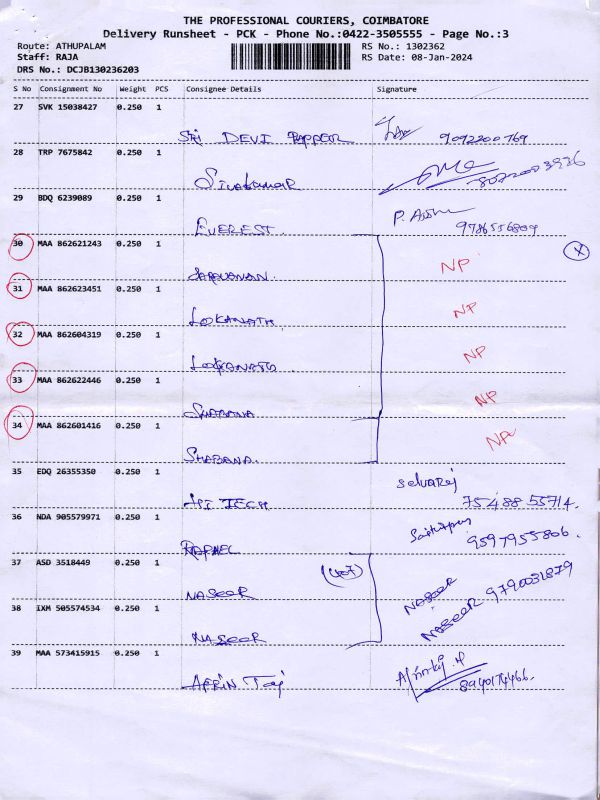 THE PROFESSIONAL COURIERS, COIMBATORE
Delivery Runsheet - PCK - Phone No.:0422-3505555 - Page No.:3
Route: ATHUPALAM RS No.: 1302362
Staff: RAJA RS Date: 08-Jan-2024
DRS No.: DCJB130236203
S No Consignment No Weight PCS Consignee Details Signature
27 SVK 15038427 0.250 1
SRI DEVI 9092200769
28 TRP 7675842 0.250 1
Sivakumar
29 BDQ 6239089 0.250 1
EVEREST. P. 9786556809
30 MAA 862621243 0.250 1 X
SARAVANAN. NP
31 MAA 862623451 0.250 1
LOKANATH. NP
32 MAA 862604319 0.250 1
NP
33 MAA 862622446 0.250 1
NP
34 MAA 862601416 0.250 1
SHABANA. NP
35 EDQ 26355350 0.250 1
HI TECH selvaraj 75488 55714.
36 NDA 905579971 0.250 1
9597955806.
37 ASD 3518449 0.250 1
NASEER NASEER
38 IXM 505574534 0.250 1
NASEER NASEER 9790031879
39 MAA 573415915 0.250 1
AFRIN Taj 8940174466.